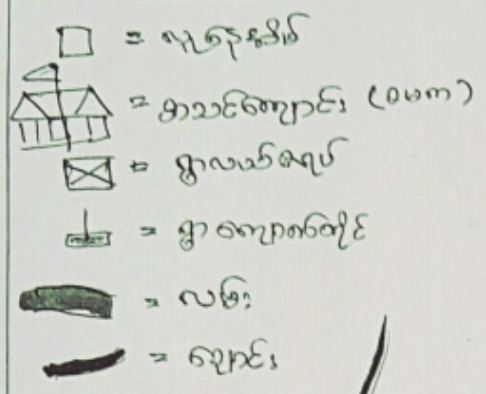 = လူနေအိမ်
= စာသင်ကျောင်း (ဝမက)
= ရွာလယ်ဇရပ်
= ရွာကျောက်တိုင်
= လမ်း
= ချောင်း